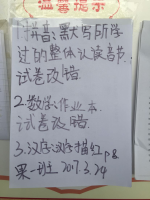 温馨提示
1.拼音:默写所学
过的整体认读音节.
试卷改错.
2.数学:作业本.
试卷改错.
3.汉字:汉字描红p8
果一班 2017.3.24